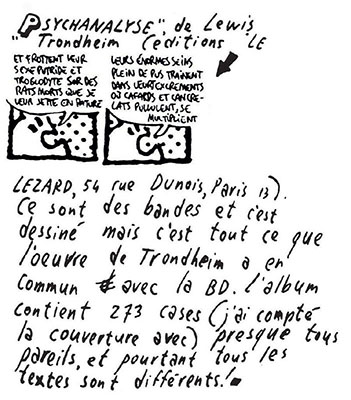 PSYCHANALYSE", de Lewis
"Trondheim (éditions LE
ET FROTTENT LEUR
SEXE PUTRIDE ET
TROGLODYTE SUR DES
RATS MORTS QUE JE
LEUR JETTE EN PATURE
LEURS ÉNORMES SEINS
PLEIN DE PUS TRAINENT
DANS LEURS EXCREMENTS
OÙ CAFARDS ET CANCRE-
LATS PULLULENT, SE
MULTIPLIENT
LEZARD, 54 rue Dunois, Paris 13).
Ce sont des bandes et c'est
dessiné mais c'est tout ce que
l'oeuvre de Trondheim a en
commun avec la BD. L'album
contient 273 cases (j'ai compté
la couverture avec) presque tous
pareils, et pourtant tous les
textes sont différents!